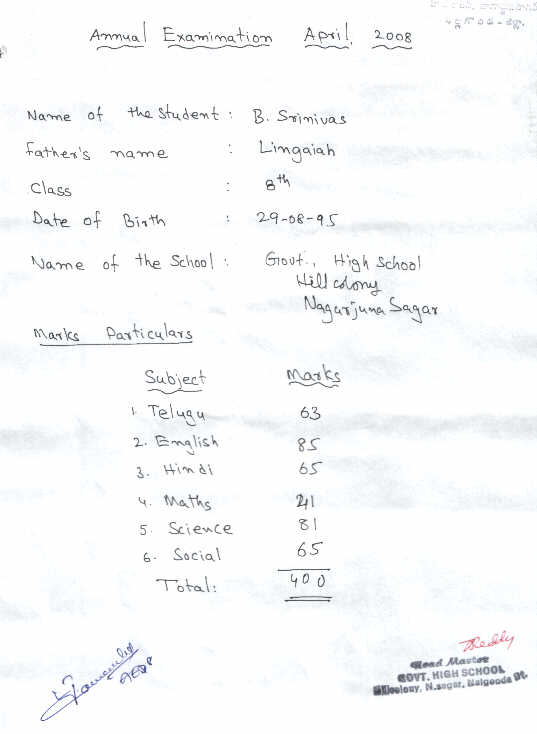 Annual Examination April, 2008
Name of the Student : B. Srinivas
Father's name : Lingaiah
Class : 8th
Date of Birth : 29-08-95
Name of the School : Govt., High School
Hill colony
Nagarjuna Sagar
Marks Particulars
Subject Marks
1. Telugu 63
2. English 85
3. Hindi 65
4. Maths 41
5. Science 81
6. Social 65
Total: 400
Reddy
Head Master
GOVT. HIGH SCHOOL
Hillcolony, N.sagar, Nalgonda Dt.